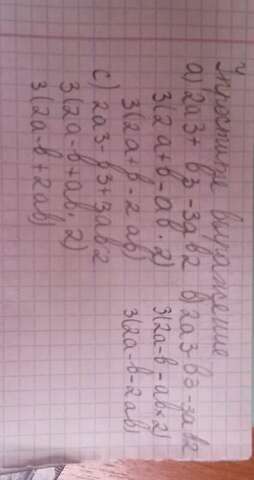 Упростить выражение
а) 2a3+ b3 -3ab2 в) 2a3-b3-3ab2
3(2a+b-ab·2) 3(2a-b-ab×2)
3(2a+b-2ab) 3(2a-b-2ab)
c) 2a3-b3+3ab2
3(2a-b+ab·2)
3(2a-b+2ab)